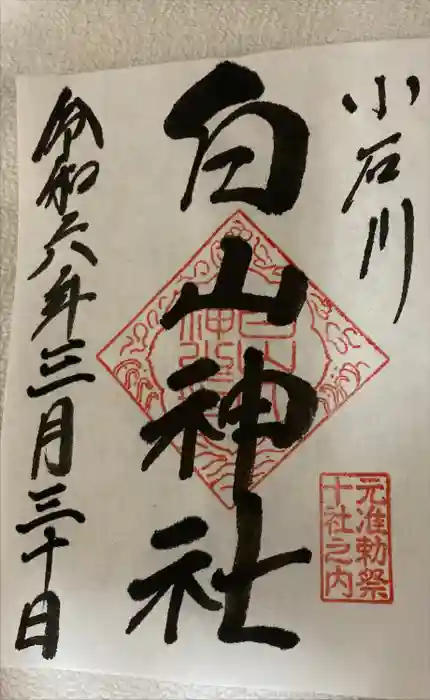 小石川
白山神社
元准勅祭
十社之内
令和六年三月三十日